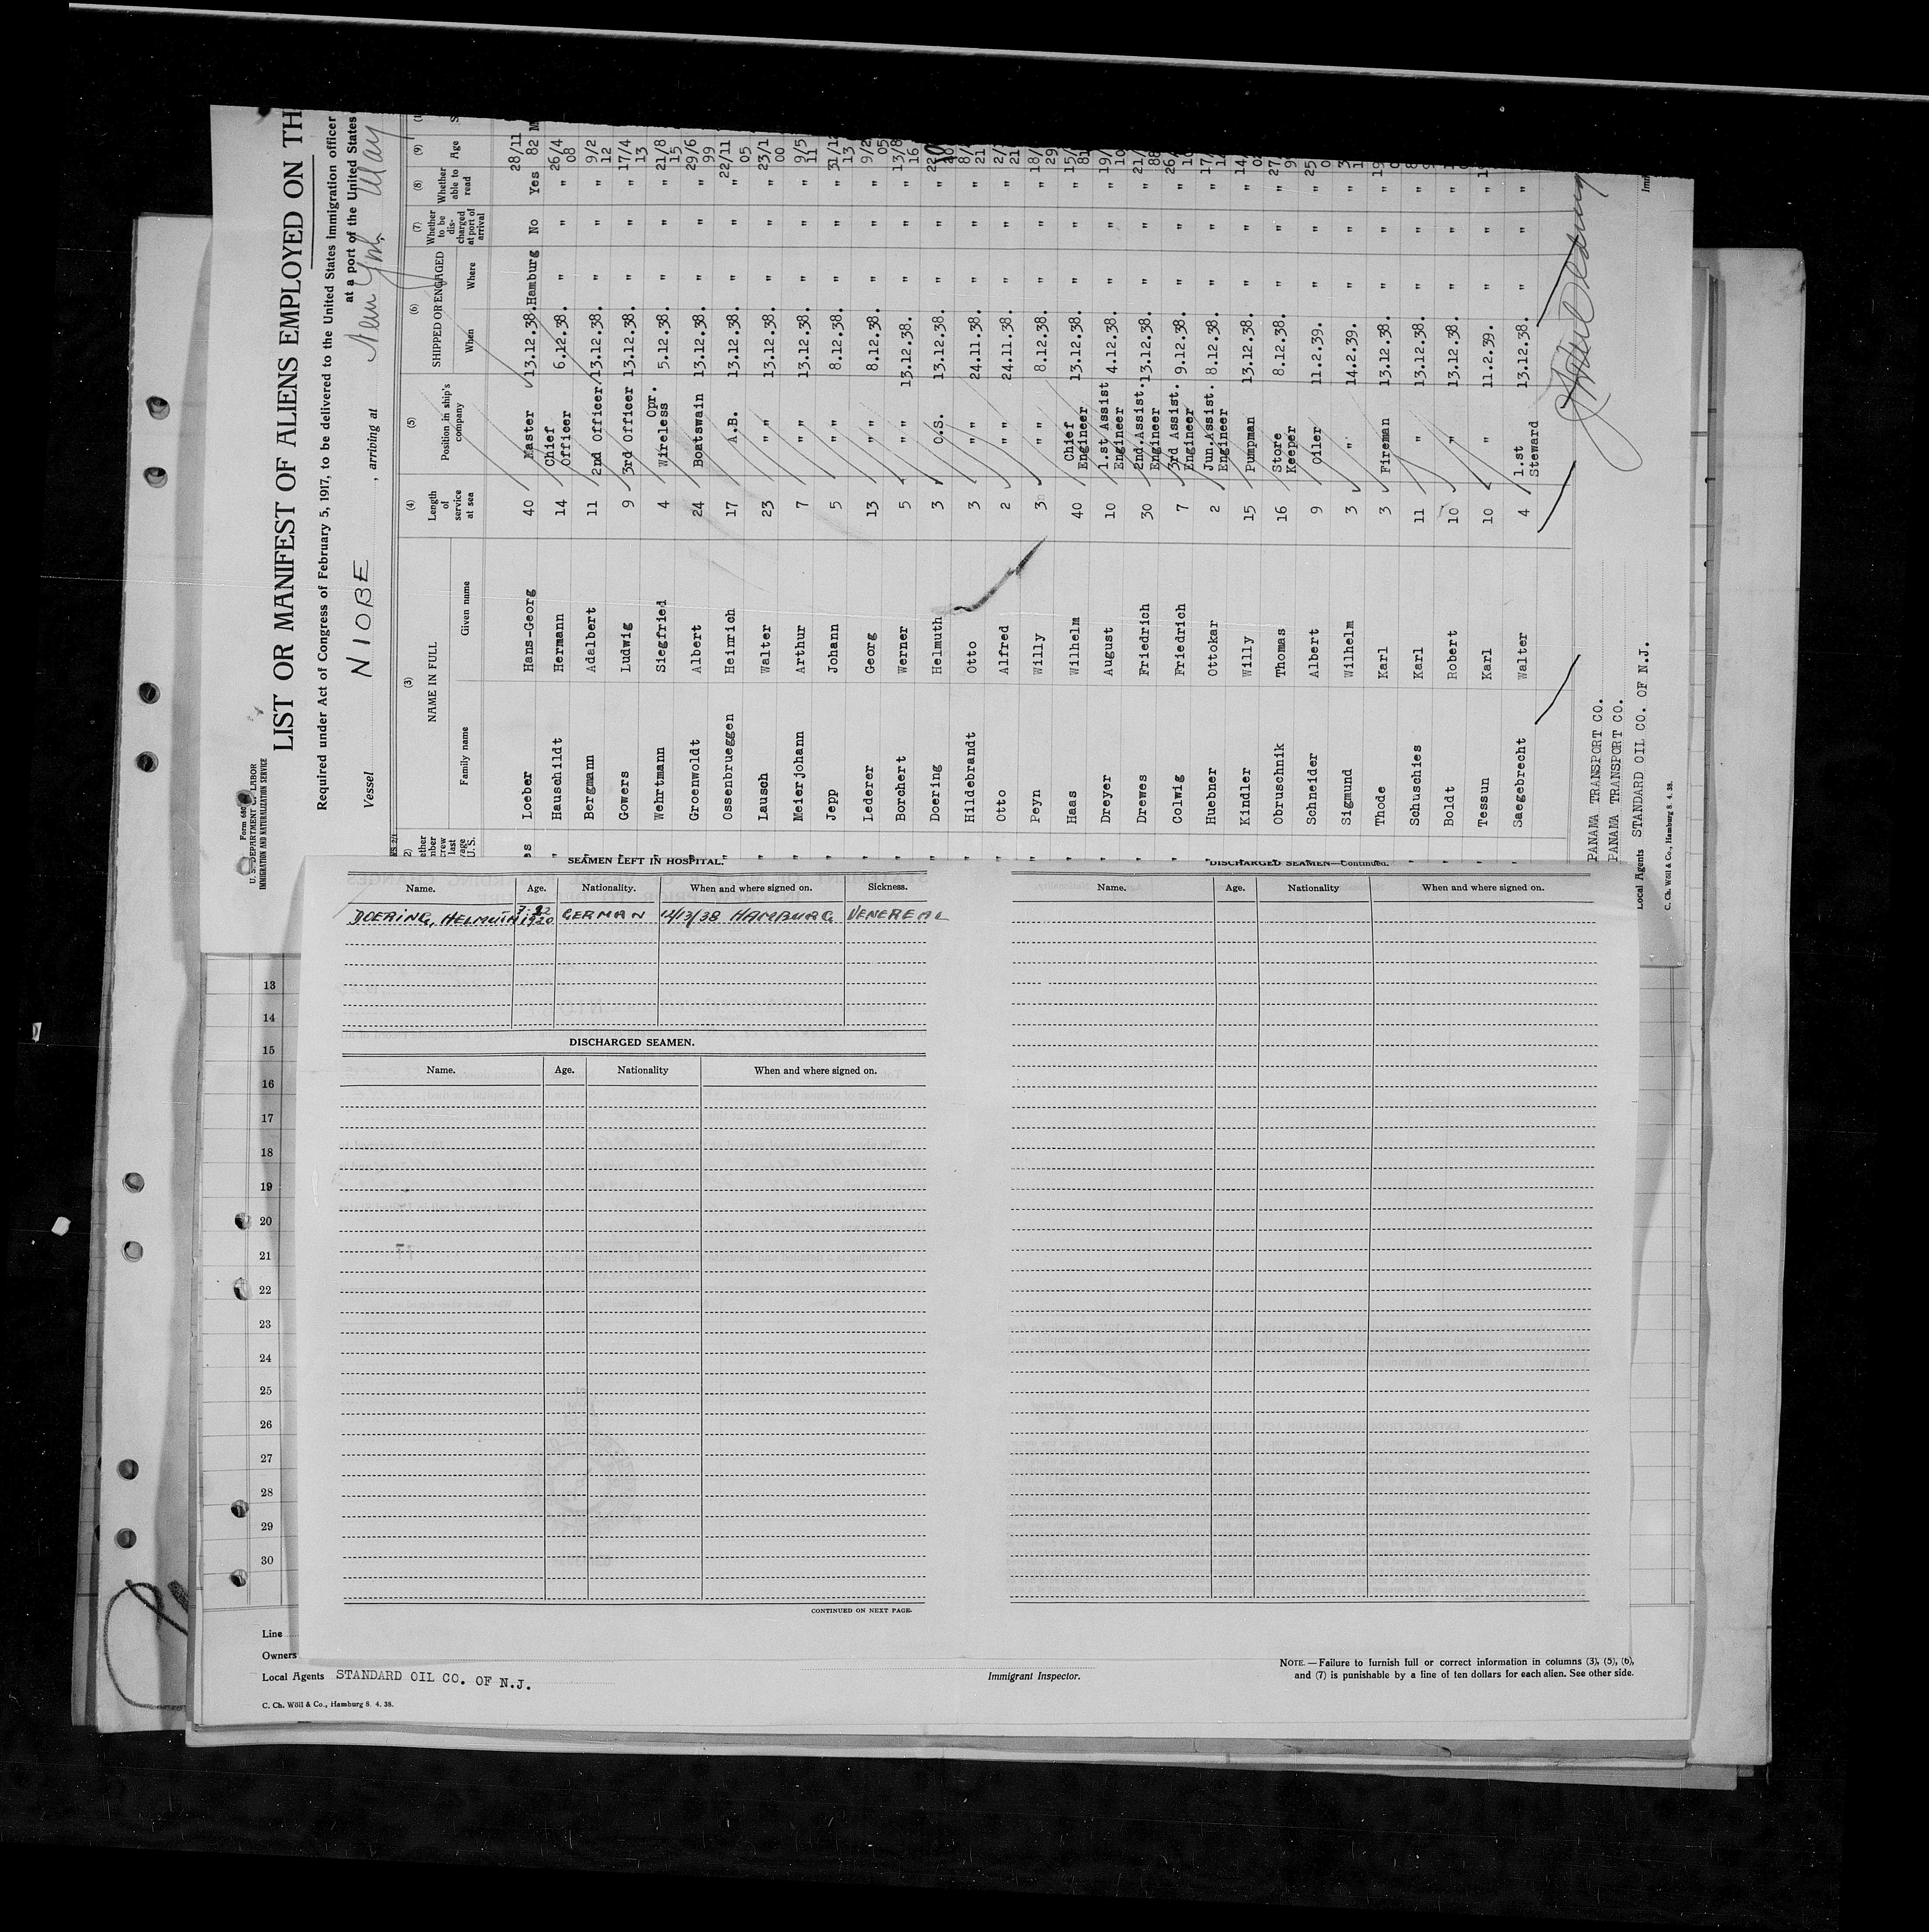 Form 680
U. S. DEPARTMENT OF LABOR
IMMIGRATION AND NATURALIZATION SERVICE
LIST OR MANIFEST OF ALIENS EMPLOYED ON TH
Required under Act of Congress of February 5, 1917, to be delivered to the United States immigration officer
at a port of the United States
Vessel NIOBE , arriving at New York May
(3) (4) (5) (6) (7) (8) (9)
NAME IN FULL Length of service at sea Position in ship's company SHIPPED OR ENGAGED Whether to be dis- charged at port of arrival Whether able to read Age
Family name Given name When Where
Loeber Hans-Georg 40 Master 13.12.38. Hamburg No Yes 28/11 82 M
Hauschildt Hermann 14 Chief Officer 6.12.38. " " " 26/4 08
Bergmann Adalbert 11 2nd Officer 13.12.38. " " " 9/2 12
Gowers Ludwig 9 3rd Officer 13.12.38. " " " 17/4 13
Wehrtmann Siegfried 4 Wireless Opr. 5.12.38. " " " 21/8 15
Groenwoldt Albert 24 Boatswain 13.12.38. " " " 29/6 99
Ossenbrueggen Heinrich 17 A.B. 13.12.38. " " " 22/11 05
Lausch Walter 23 " " 13.12.38. " " " 23/1 00
Meierjohann Arthur 7 " " 13.12.38. " " " 9/5 11
Jepp Johann 5 " " 8.12.38. " " " 31/1 13
Lederer Georg 13 " " 8.12.38. " " " 9/2 05
Borchert Werner 5 " " 13.12.38. " " " 13/8 16
Doering Helmuth 3 O.S. 13.12.38. " " " 22
Hildebrandt Otto 3 " " 24.11.38. " " " 8/ 21
Otto Alfred 2 " " 24.11.38. " " " 2/ 21
Peyn Willy 3 " " 8.12.38. " " " 18/ 29
Haas Wilhelm 40 Chief Engineer 13.12.38. " " " 15/ 81
Dreyer August 10 1.st Assist Engineer 4.12.38. " " " 19/ 10
Drewes Friedrich 30 2nd.Assist. Engineer 13.12.38. " " " 21/ 88
Colwig Friedrich 7 3rd Assist. Engineer 9.12.38. " " " 26
Huebner Ottokar 2 Jun.Assist. Engineer 8.12.38. " " " 17
Kindler Willy 15 Pumpman 13.12.38. " " " 14
Obruschnik Thomas 16 Store Keeper 8.12.38. " " " 27
Schneider Albert 9 Oiler 11.2.39. " " " 25
Sigmund Wilhelm 3 " 14.2.39. " " "
Thode Karl 3 Fireman 13.12.38. " " "
Schuschies Karl 11 " 13.12.38. " " "
Boldt Robert 10 " 13.12.38. " " "
Tessun Karl 10 " 11.2.39. " " "
Saegebrecht Walter 4 1.st Steward 13.12.38. " " "
PANAMA TRANSPORT CO.
PANAMA TRANSPORT CO.
Local Agents STANDARD OIL CO. OF N.J.
C. Ch. Wöll & Co., Hamburg 8. 4. 38.
SEAMEN LEFT IN HOSPITAL.
Name. Age. Nationality. When and where signed on. Sickness.
DOERING, HELMUTH 3-22 1920 GERMAN 12/13/38 HAMBURG VENEREAL
DISCHARGED SEAMEN.
Name. Age. Nationality When and where signed on.
CONTINUED ON NEXT PAGE.
DISCHARGED SEAMEN—Continued.
Name. Age. Nationality When and where signed on.
13
14
15
16
17
18
19
20
21
22
23
24
25
26
27
28
29
30
Line
Owners
Local Agents STANDARD OIL CO. OF N.J.
C. Ch. Wöll & Co., Hamburg 8. 4. 38.
Immigrant Inspector.
NOTE.—Failure to furnish full or correct information in columns (3), (5), (6),
and (7) is punishable by a fine of ten dollars for each alien. See other side.